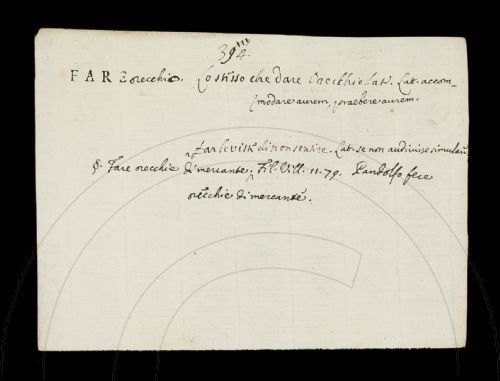 394
FARE orecchio. Lo stesso che dare l'orecchio Lat. Lat. accom-
modare aurem, praebere aurem.
far le viste di non sentire. Lat. se non audivisse simulare
§. Fare orecchie di mercante. Fil. Vill. 11. 79. Pandolfo fece
orecchie di mercante.